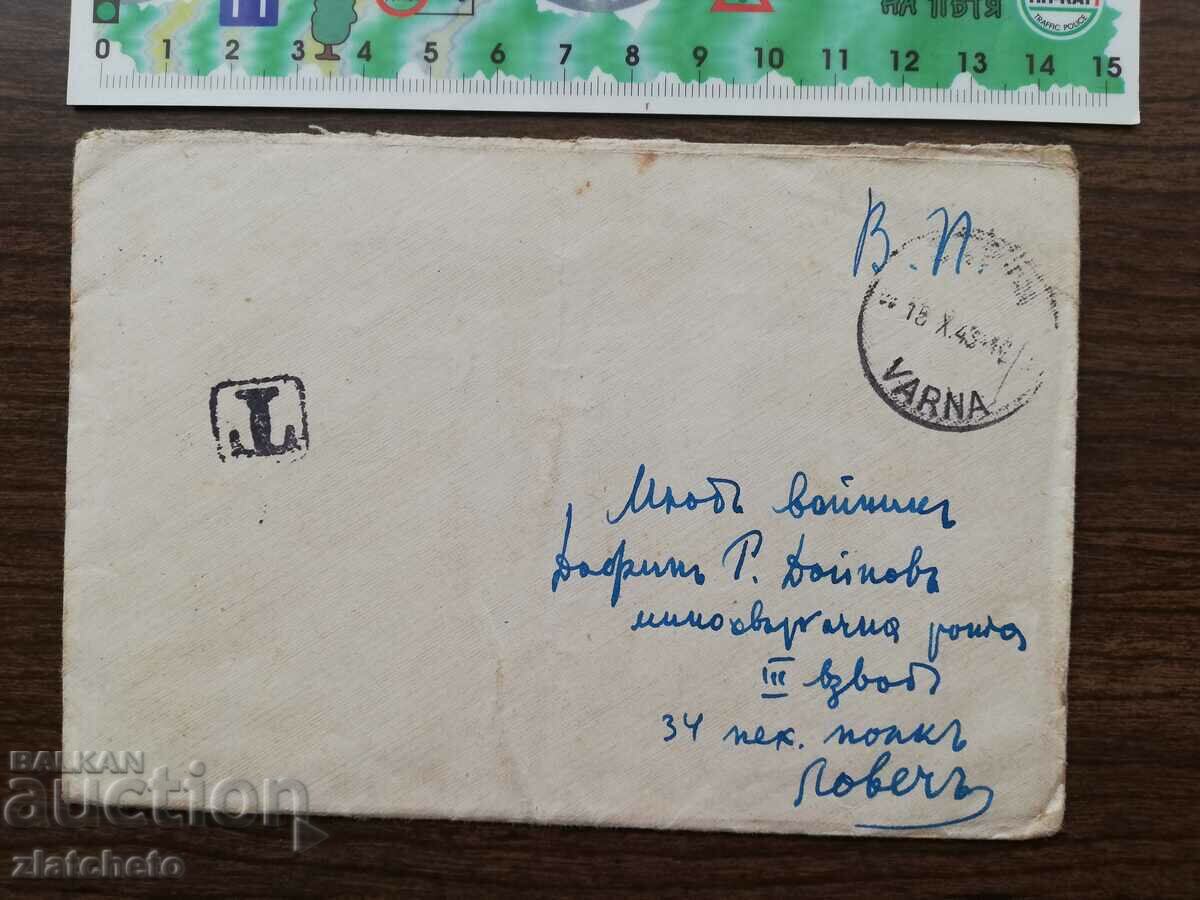 НА ПЪТЯ
TRAFFIC POLICE
0 1 2 3 4 5 6 7 8 9 10 11 12 13 14 15
В. П.
18 X.43
VARNA
T
Младъ войникъ
Дафинъ Г. Дойновъ
миносвъргачна рота
III взводъ
34 пех. полкъ
Ловечъ
BALKAN
auction
zlatcheto